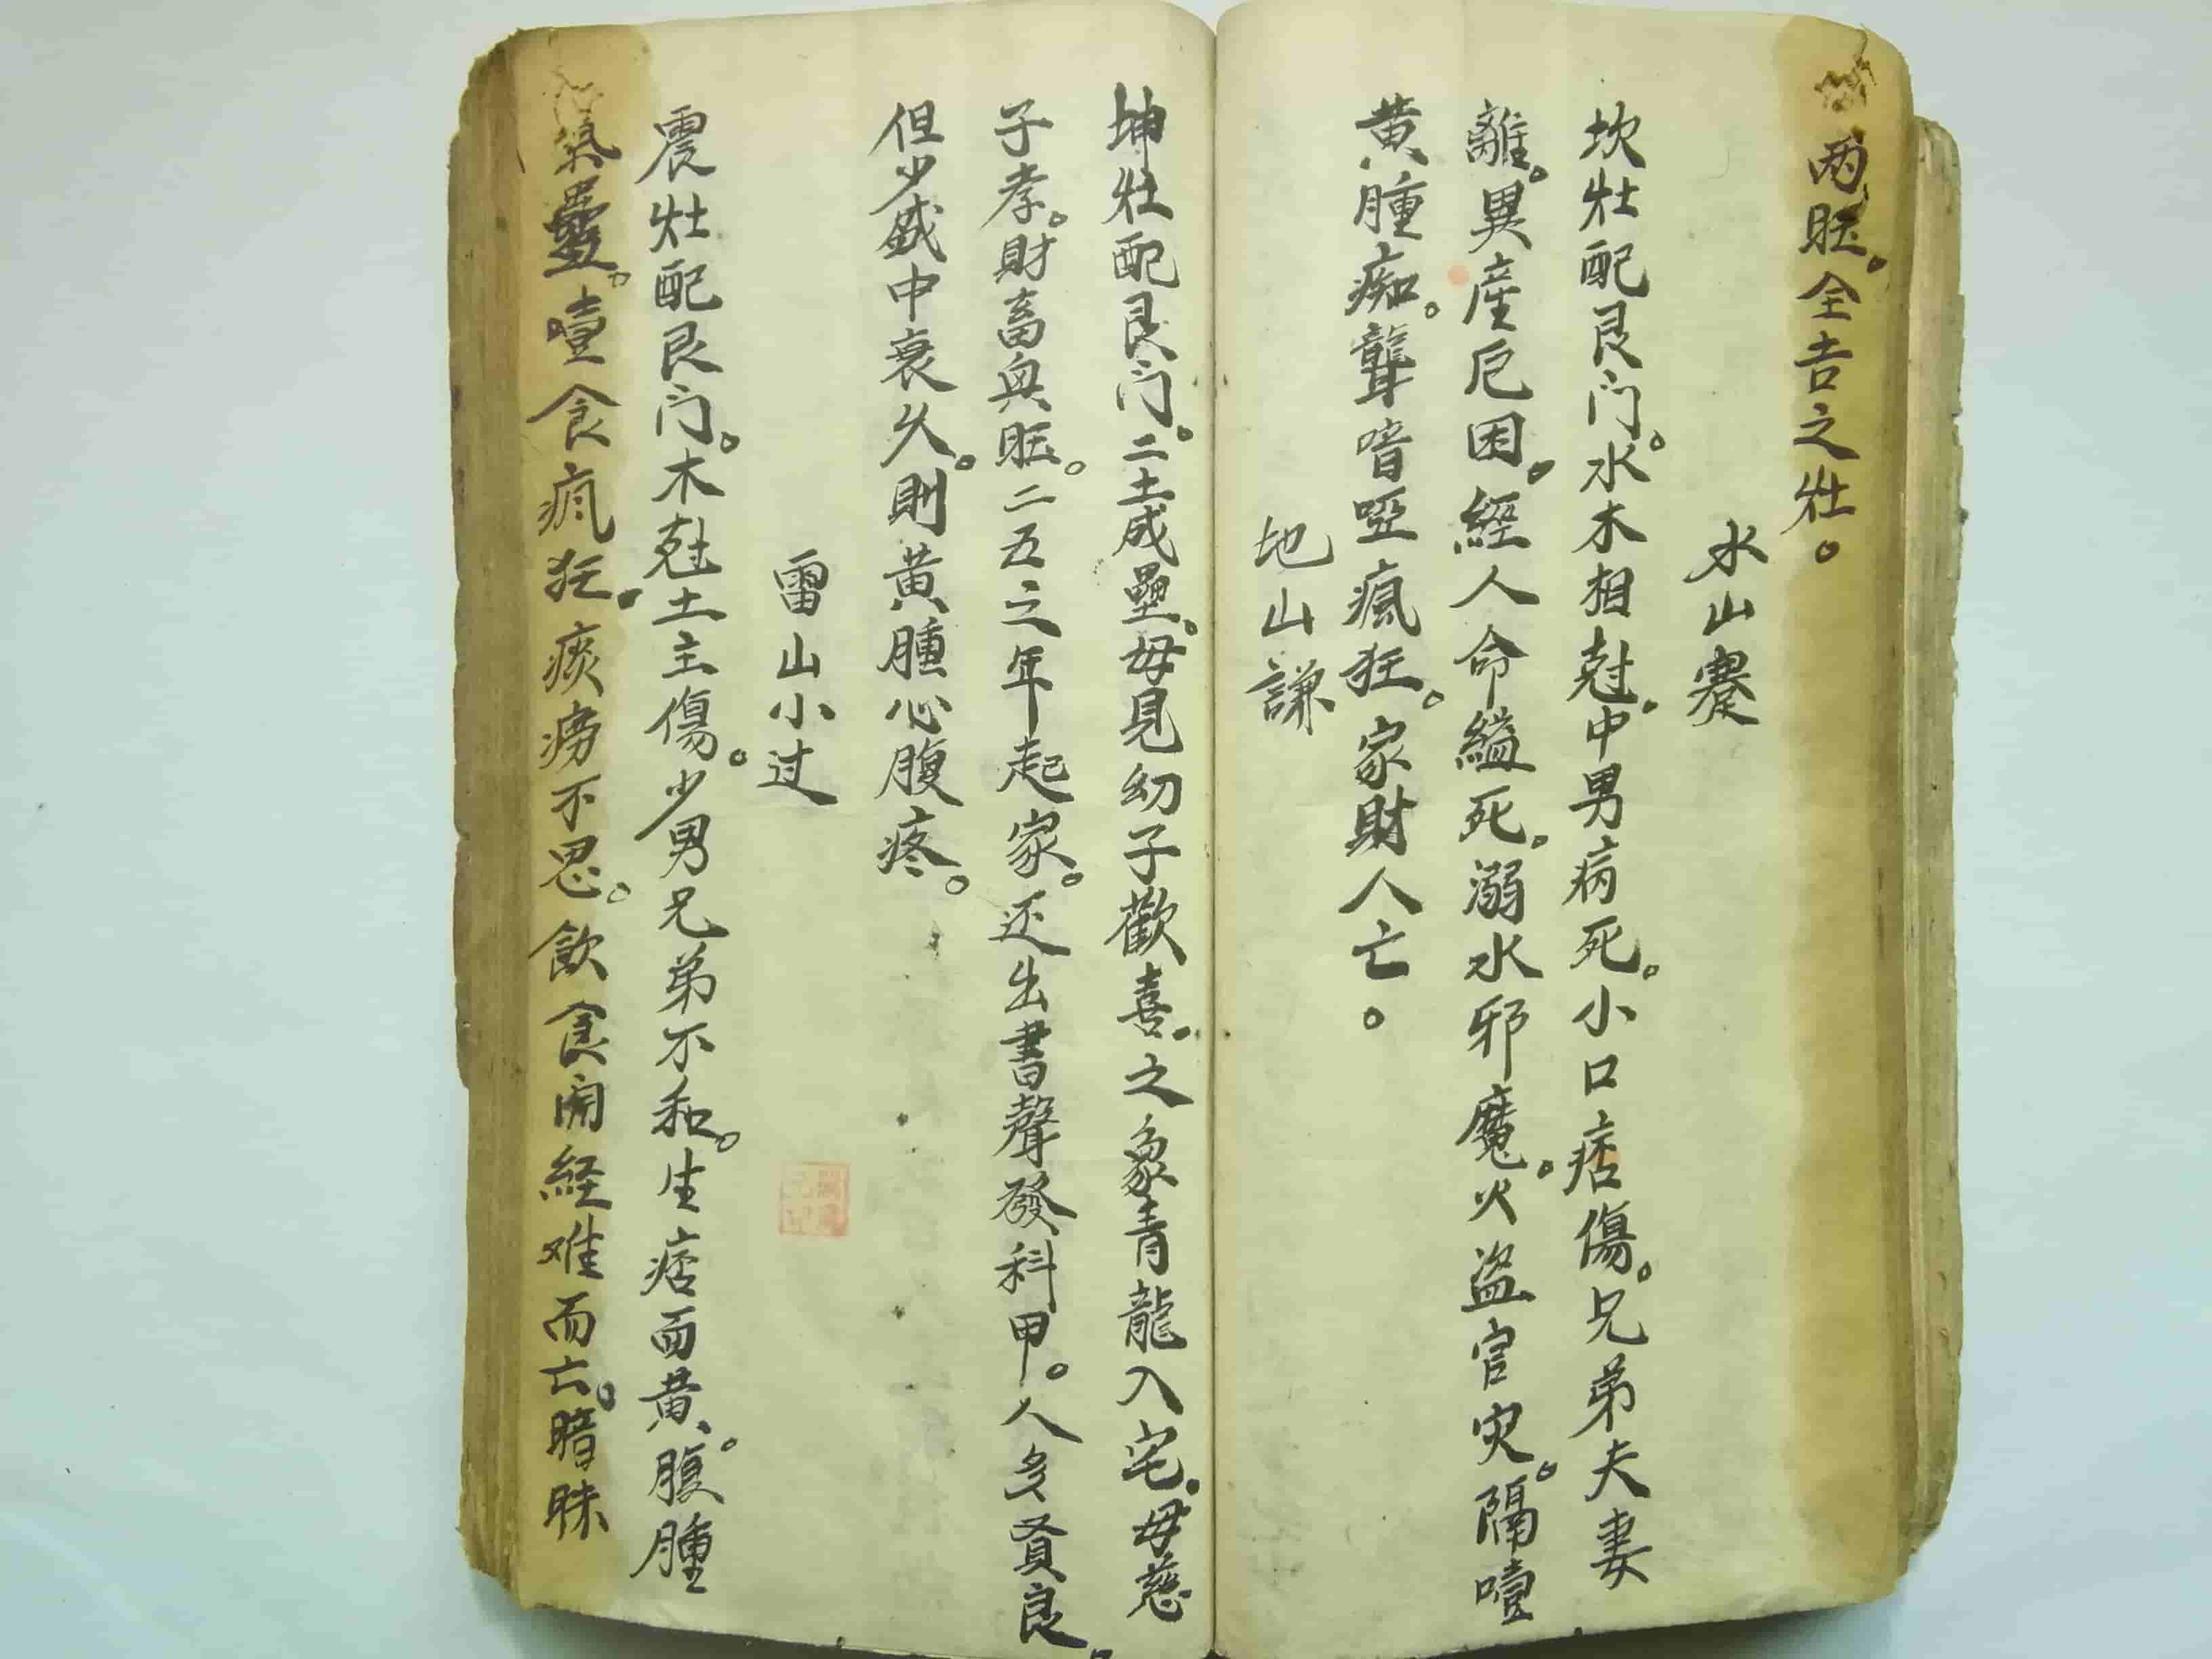 两旺。全吉之灶。
水山蹇
坎灶配艮门。水木相尅。中男病死。小口痞傷。兄弟夫妻
離。異産厄困。經人命縊死。溺水邪魔。火盗官灾。隔噎
黄腫痴。聾喑哑瘋狂。家財人亡。
地山謙
坤灶配艮门。二土成壘。母見幼子歡喜。之象青龍入宅。母慈
子孝。財畜與旺。二五之年起家。还出書聲發科甲。人多賢良。
但少盛中衰久。則黄腫心腹疼。
雷山小过
震灶配艮门。木尅土主傷。少男兄弟不和。生痞面黄。腹腫
氣蠱。噎食瘋狂。痰痨不思。飲食闹経难而亡。暗昧